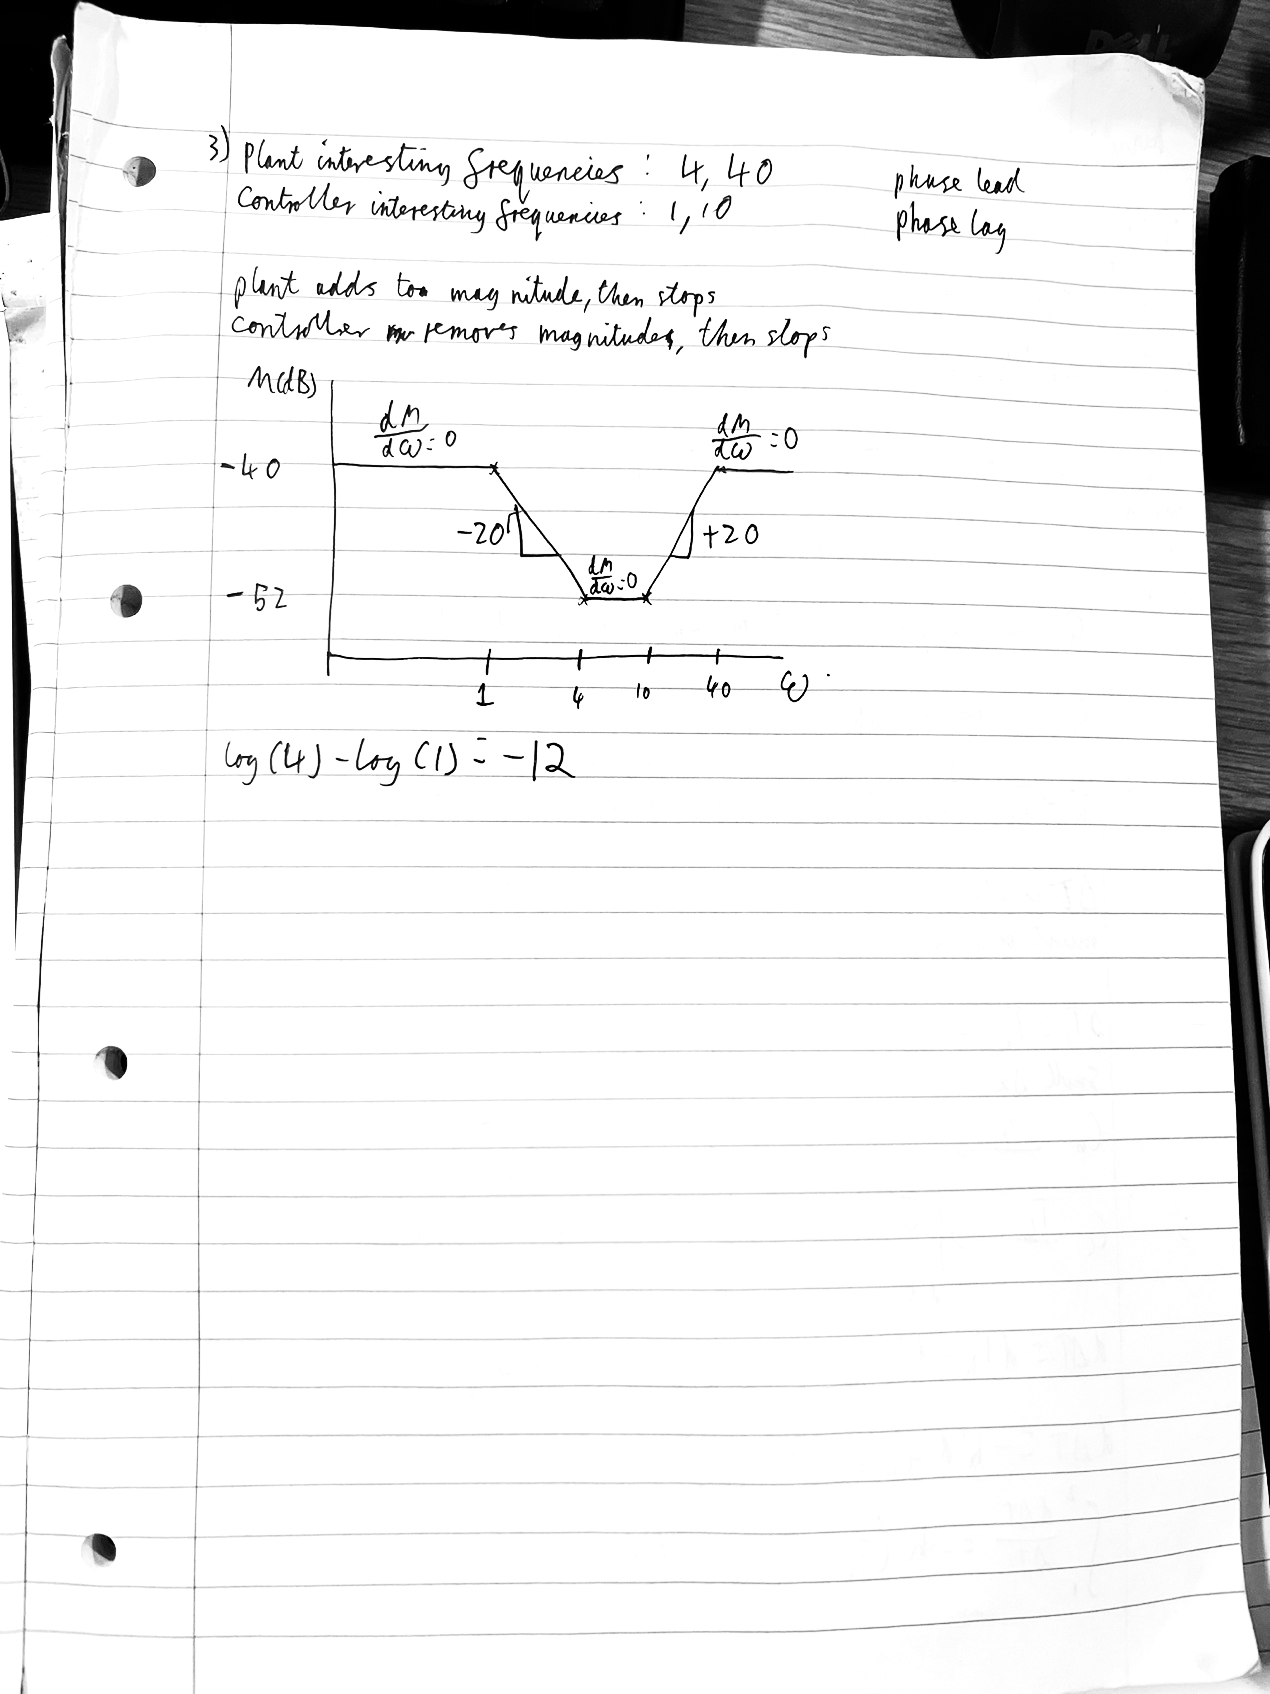 3) Plant interesting frequencies : 4, 40 phase lead
Controller interesting frequencies : 1, 10 phase lag
plant adds to magnitude, then stops
controller removes magnitudes, then stops
M(dB)
dM/dω = 0
dM/dω = 0
-40
-20
+20
dM/dω = 0
-52
1 4 10 40 ω
log(4) - log(1) = -12